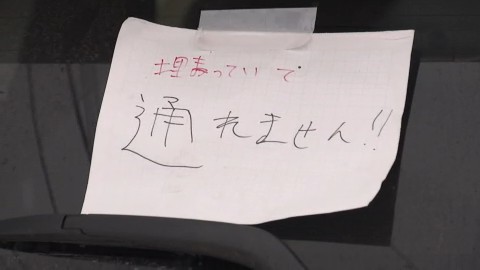 埋まっていて
通れません!!